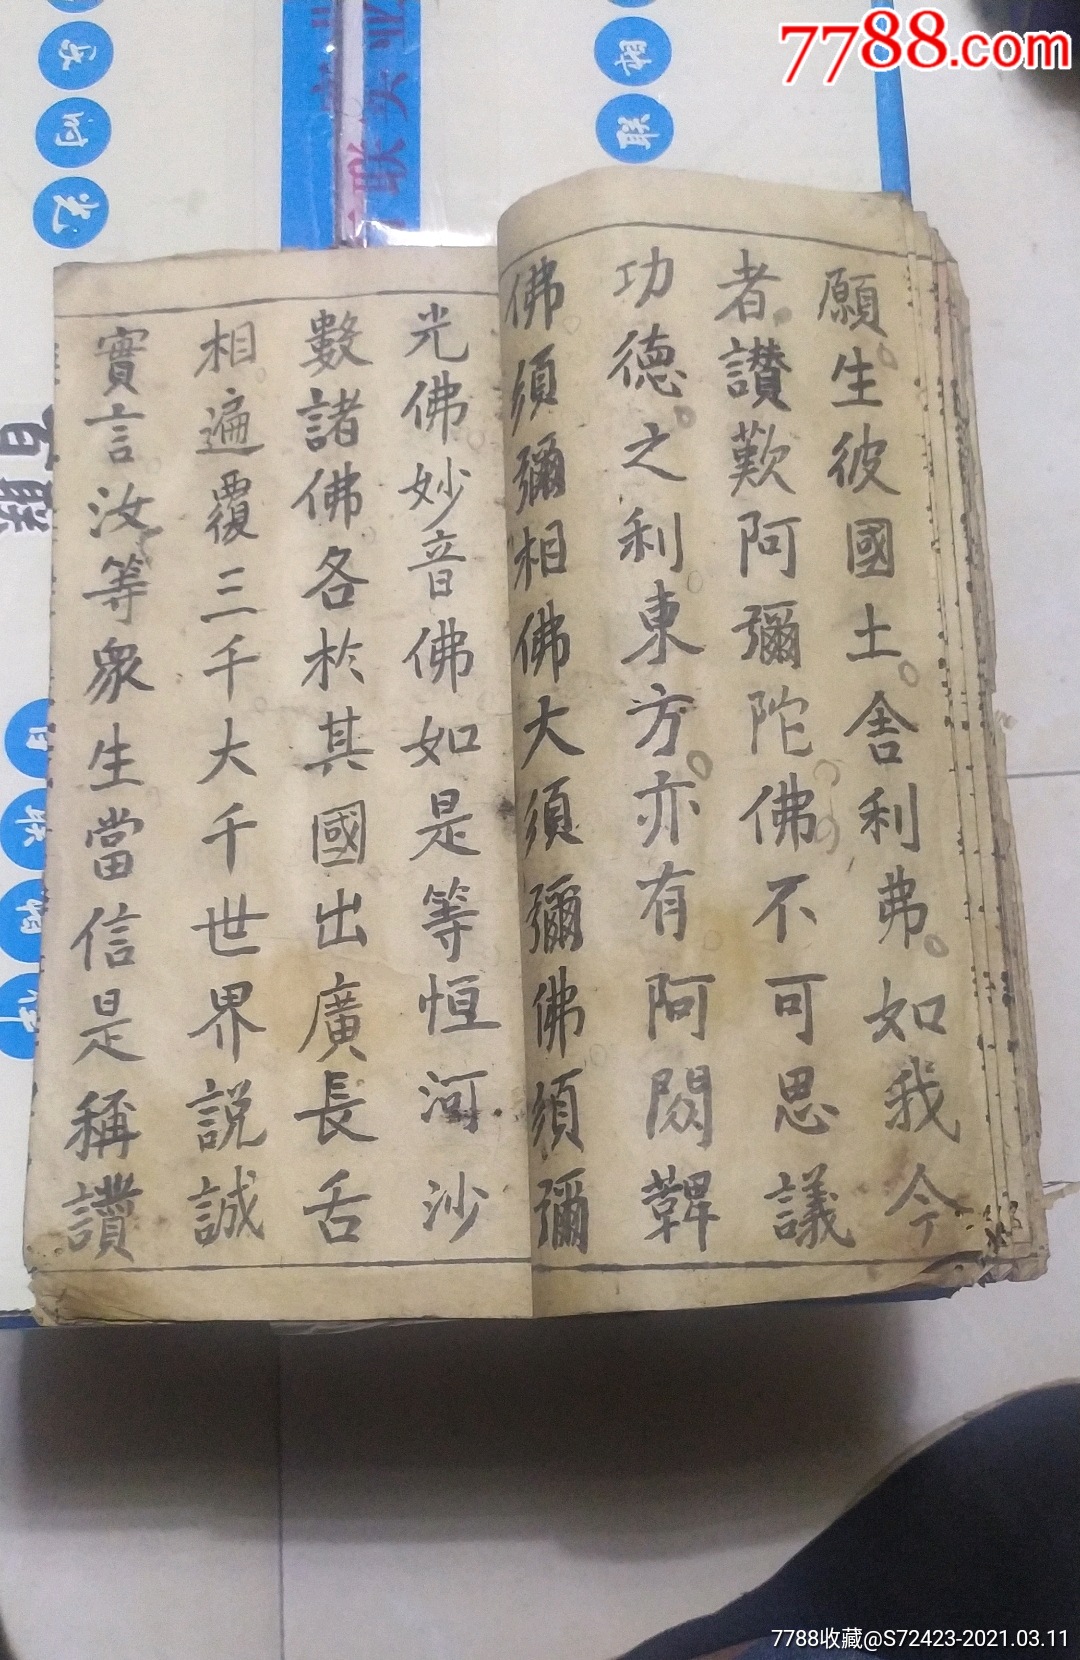 7788.com
願生彼國土舎利弗如我今
者讃歎阿彌陀佛不可思議
功德之利東方亦有阿閦鞞
佛須彌相佛大須彌佛須彌
光佛妙音佛如是等恒河沙
數諸佛各於其國出廣長舌
相遍覆三千大千世界説誠
實言汝等衆生當信是稱讚
7788收藏@S72423-2021.03.11